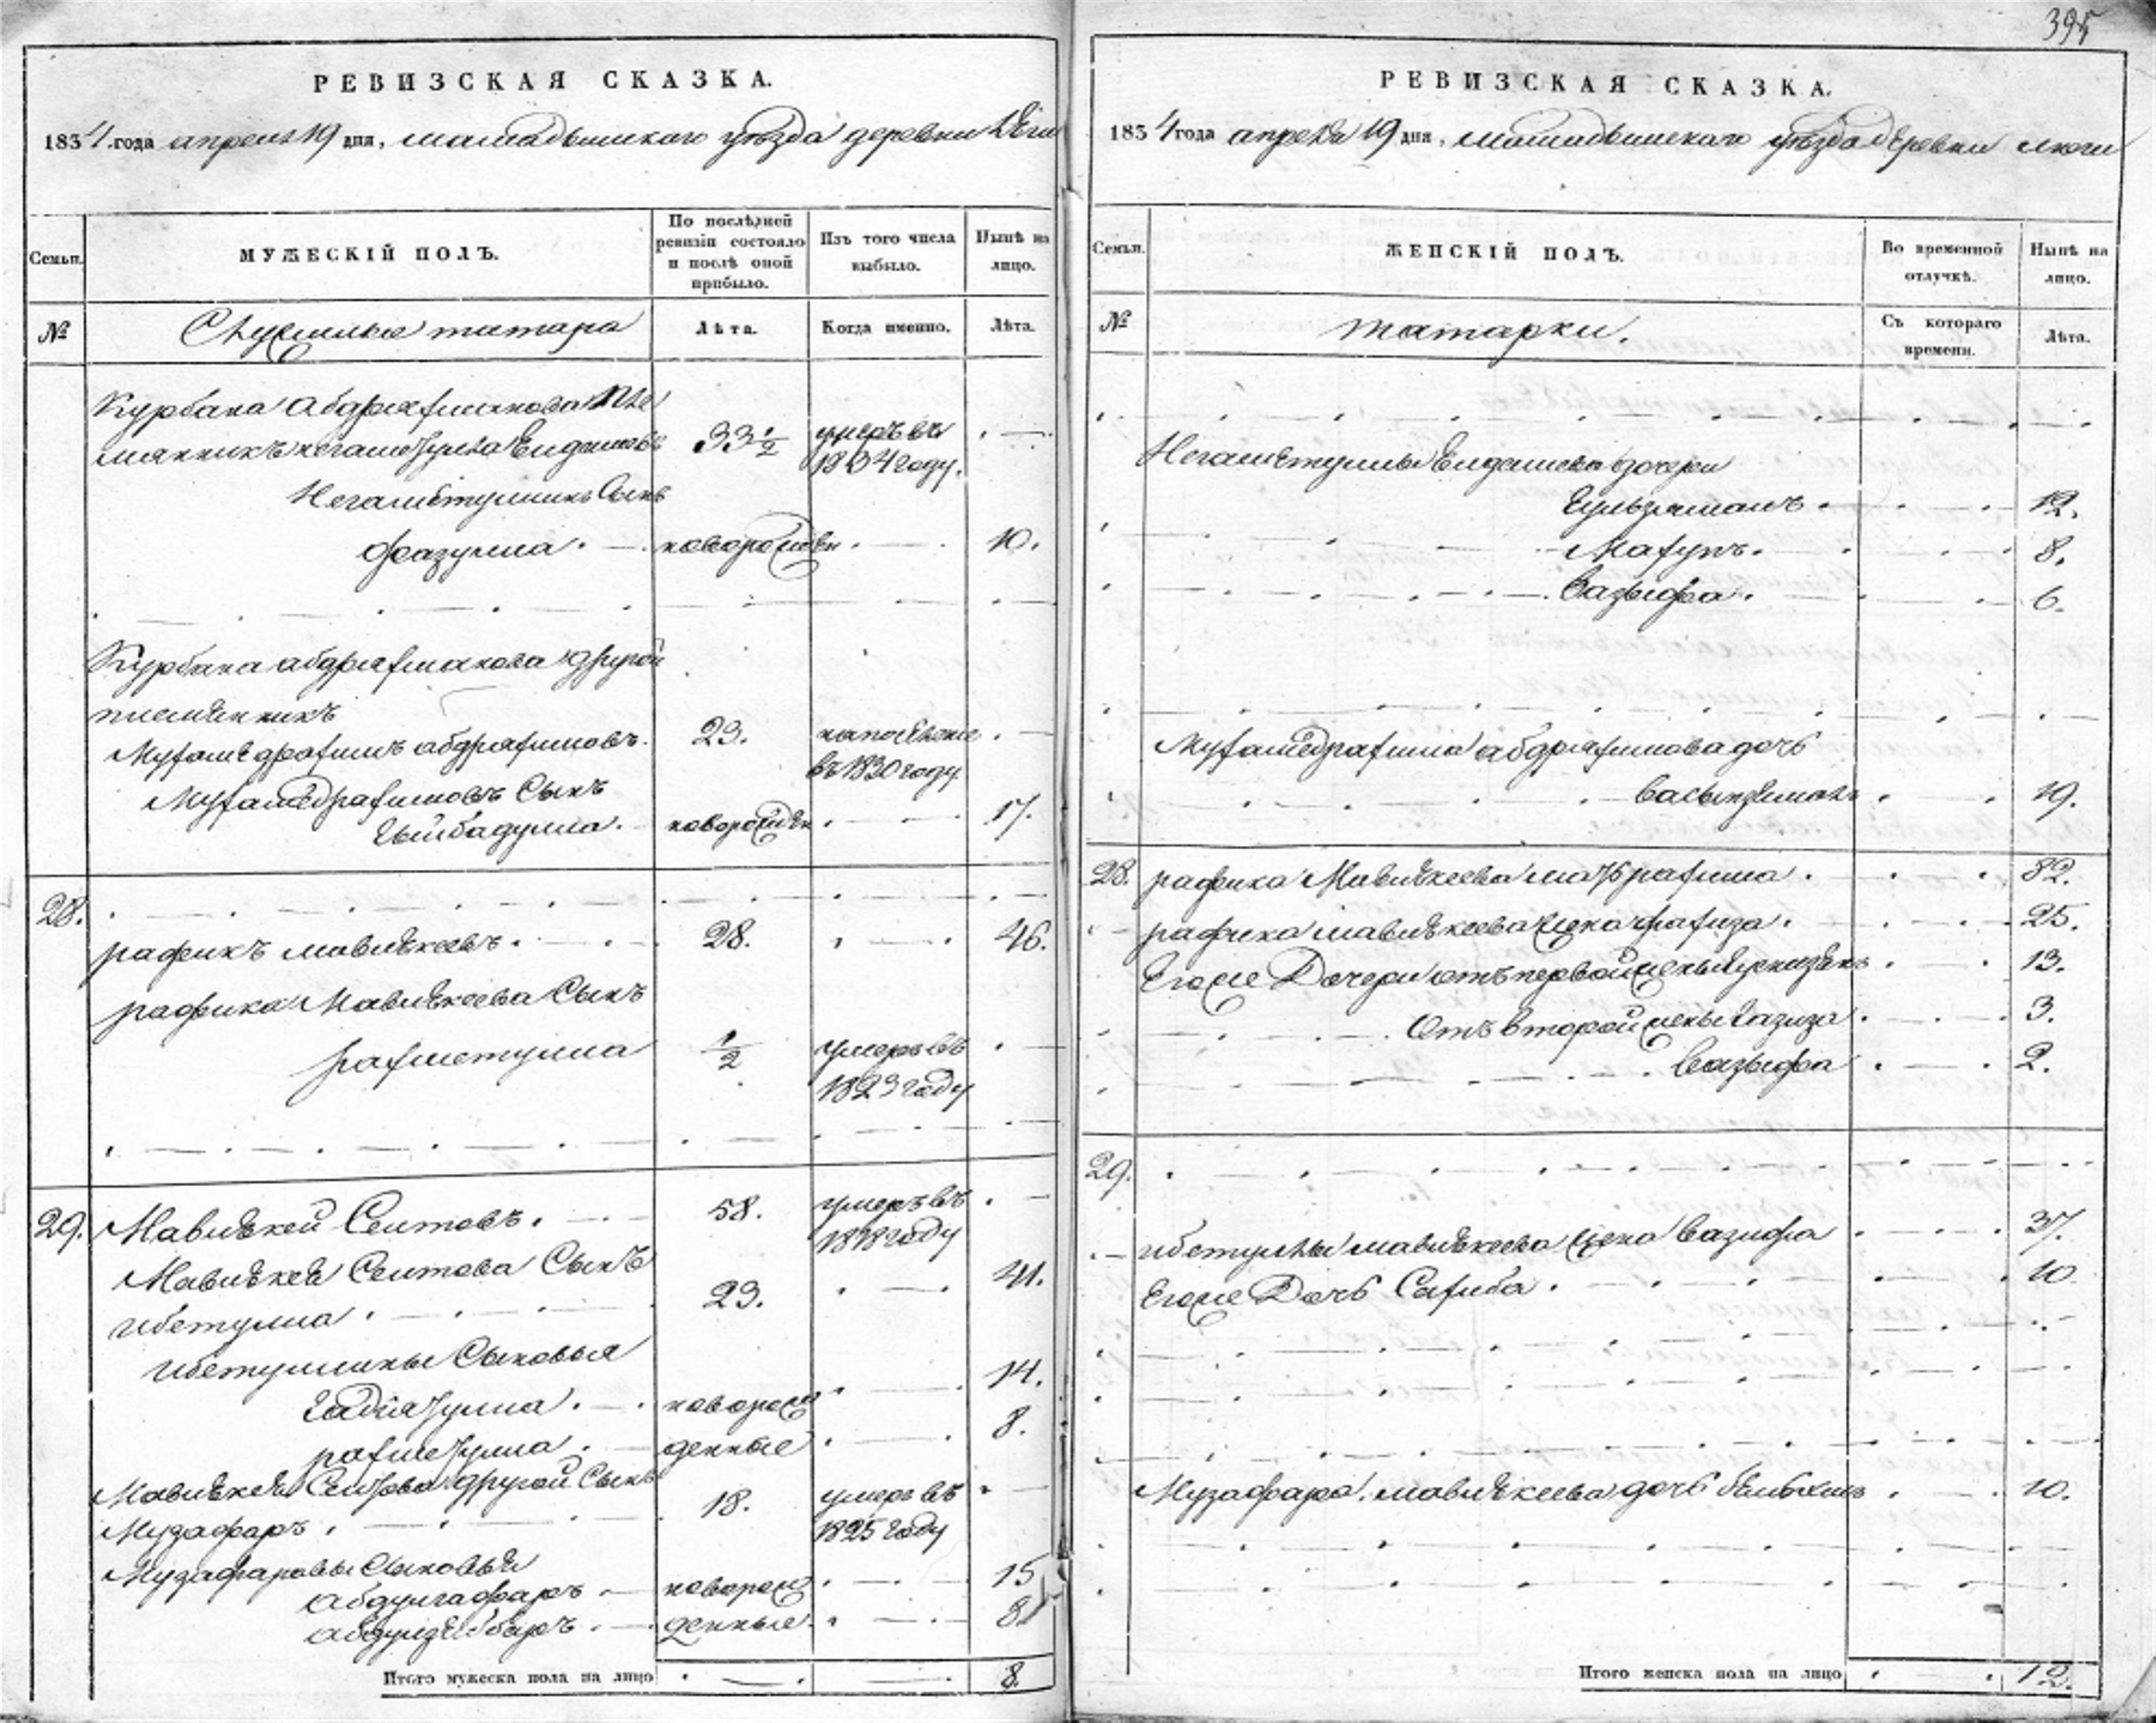 395
РЕВИЗСКАЯ СКАЗКА.
1834 года апреля 19 дня, мамадышскаго уѣзда деревни
Семьи.
МУЖЕСКІЙ ПОЛЪ.
По послѣдней ревизіи состояло и послѣ оной прибыло.
Изъ того числа выбыло.
Нынѣ на лицо.
№
Служилые татара
Лѣта.
Когда именно.
Лѣта.
Курбана Абдряхманова пле
мянникъ 33 1/2 умеръ въ
1834 году.
Сынъ
Фазулла. новорожден. 10.
Курбана абдряхманова другой
племянникъ
Мухаметрахимъ абдряхимовъ. 23.
въ 1830 году
Мухаметрахимовъ Сынъ
Гыйбадулла. новорожден 17.
28.
рафикъ мавлѣкеевъ. 28. 46.
рафика Мавлѣкеева Сынъ
рахметулла 1/2 умеръ въ
1823 году
29. Мавлѣкей Сеитовъ. 58. умеръ въ
1818 году
Мавлѣкея Сеитова Сынъ
ибетулла 23. 41.
ибетуллины Сыновья
Гадіятулла. новорож 14.
рахметулла. денные 8.
Мавлѣкея Сеитова другой Сынъ
Музафаръ. 18. умеръ въ
1825 году
Музафаровы Сыновья
абдулгафаръ новорож 15
абдулзябаръ. денные. 8
Итого мужеска пола на лицо 8.
РЕВИЗСКАЯ СКАЗКА.
1834 года апреля 19 дня, мамадышскаго уѣзда деревни
Семьи.
ЖЕНСКІЙ ПОЛЪ.
Во временной отлучкѣ.
Нынѣ на лицо.
№
татарки.
Съ котораго времени.
Лѣта.
дочери
Гульзяманъ. 12.
Махупъ. 8.
Вазыфа. 6.
Мухаметрахима абдряхимова дочь
19.
28. рафика Мавлѣкеева мать рахима. 82.
рафика мавлѣкеева жена Фафиза. 25.
Егоже Дочери отъ первой жены 13.
Отъ второй жены Газиза. 3.
Вазыфа 2.
29.
ибетуллы мавлѣкеева жена Вазифа 37.
Егоже Дочь Сахиба. 10
Музафара мавлѣкеева дочь 10.
Итого женска пола на лицо 12.